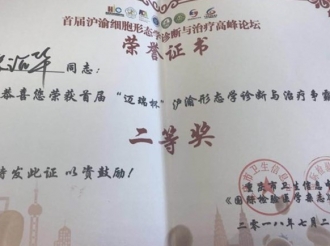 首届沪渝细胞形态学诊断与治疗高峰论坛
荣誉证书
同志：
恭喜您荣获首届“迈瑞杯”沪渝形态学诊断与治疗争霸
二等奖
特发此证 以资鼓励！
重庆市卫生信息
《国际检验医学杂志
二零一八年七月二